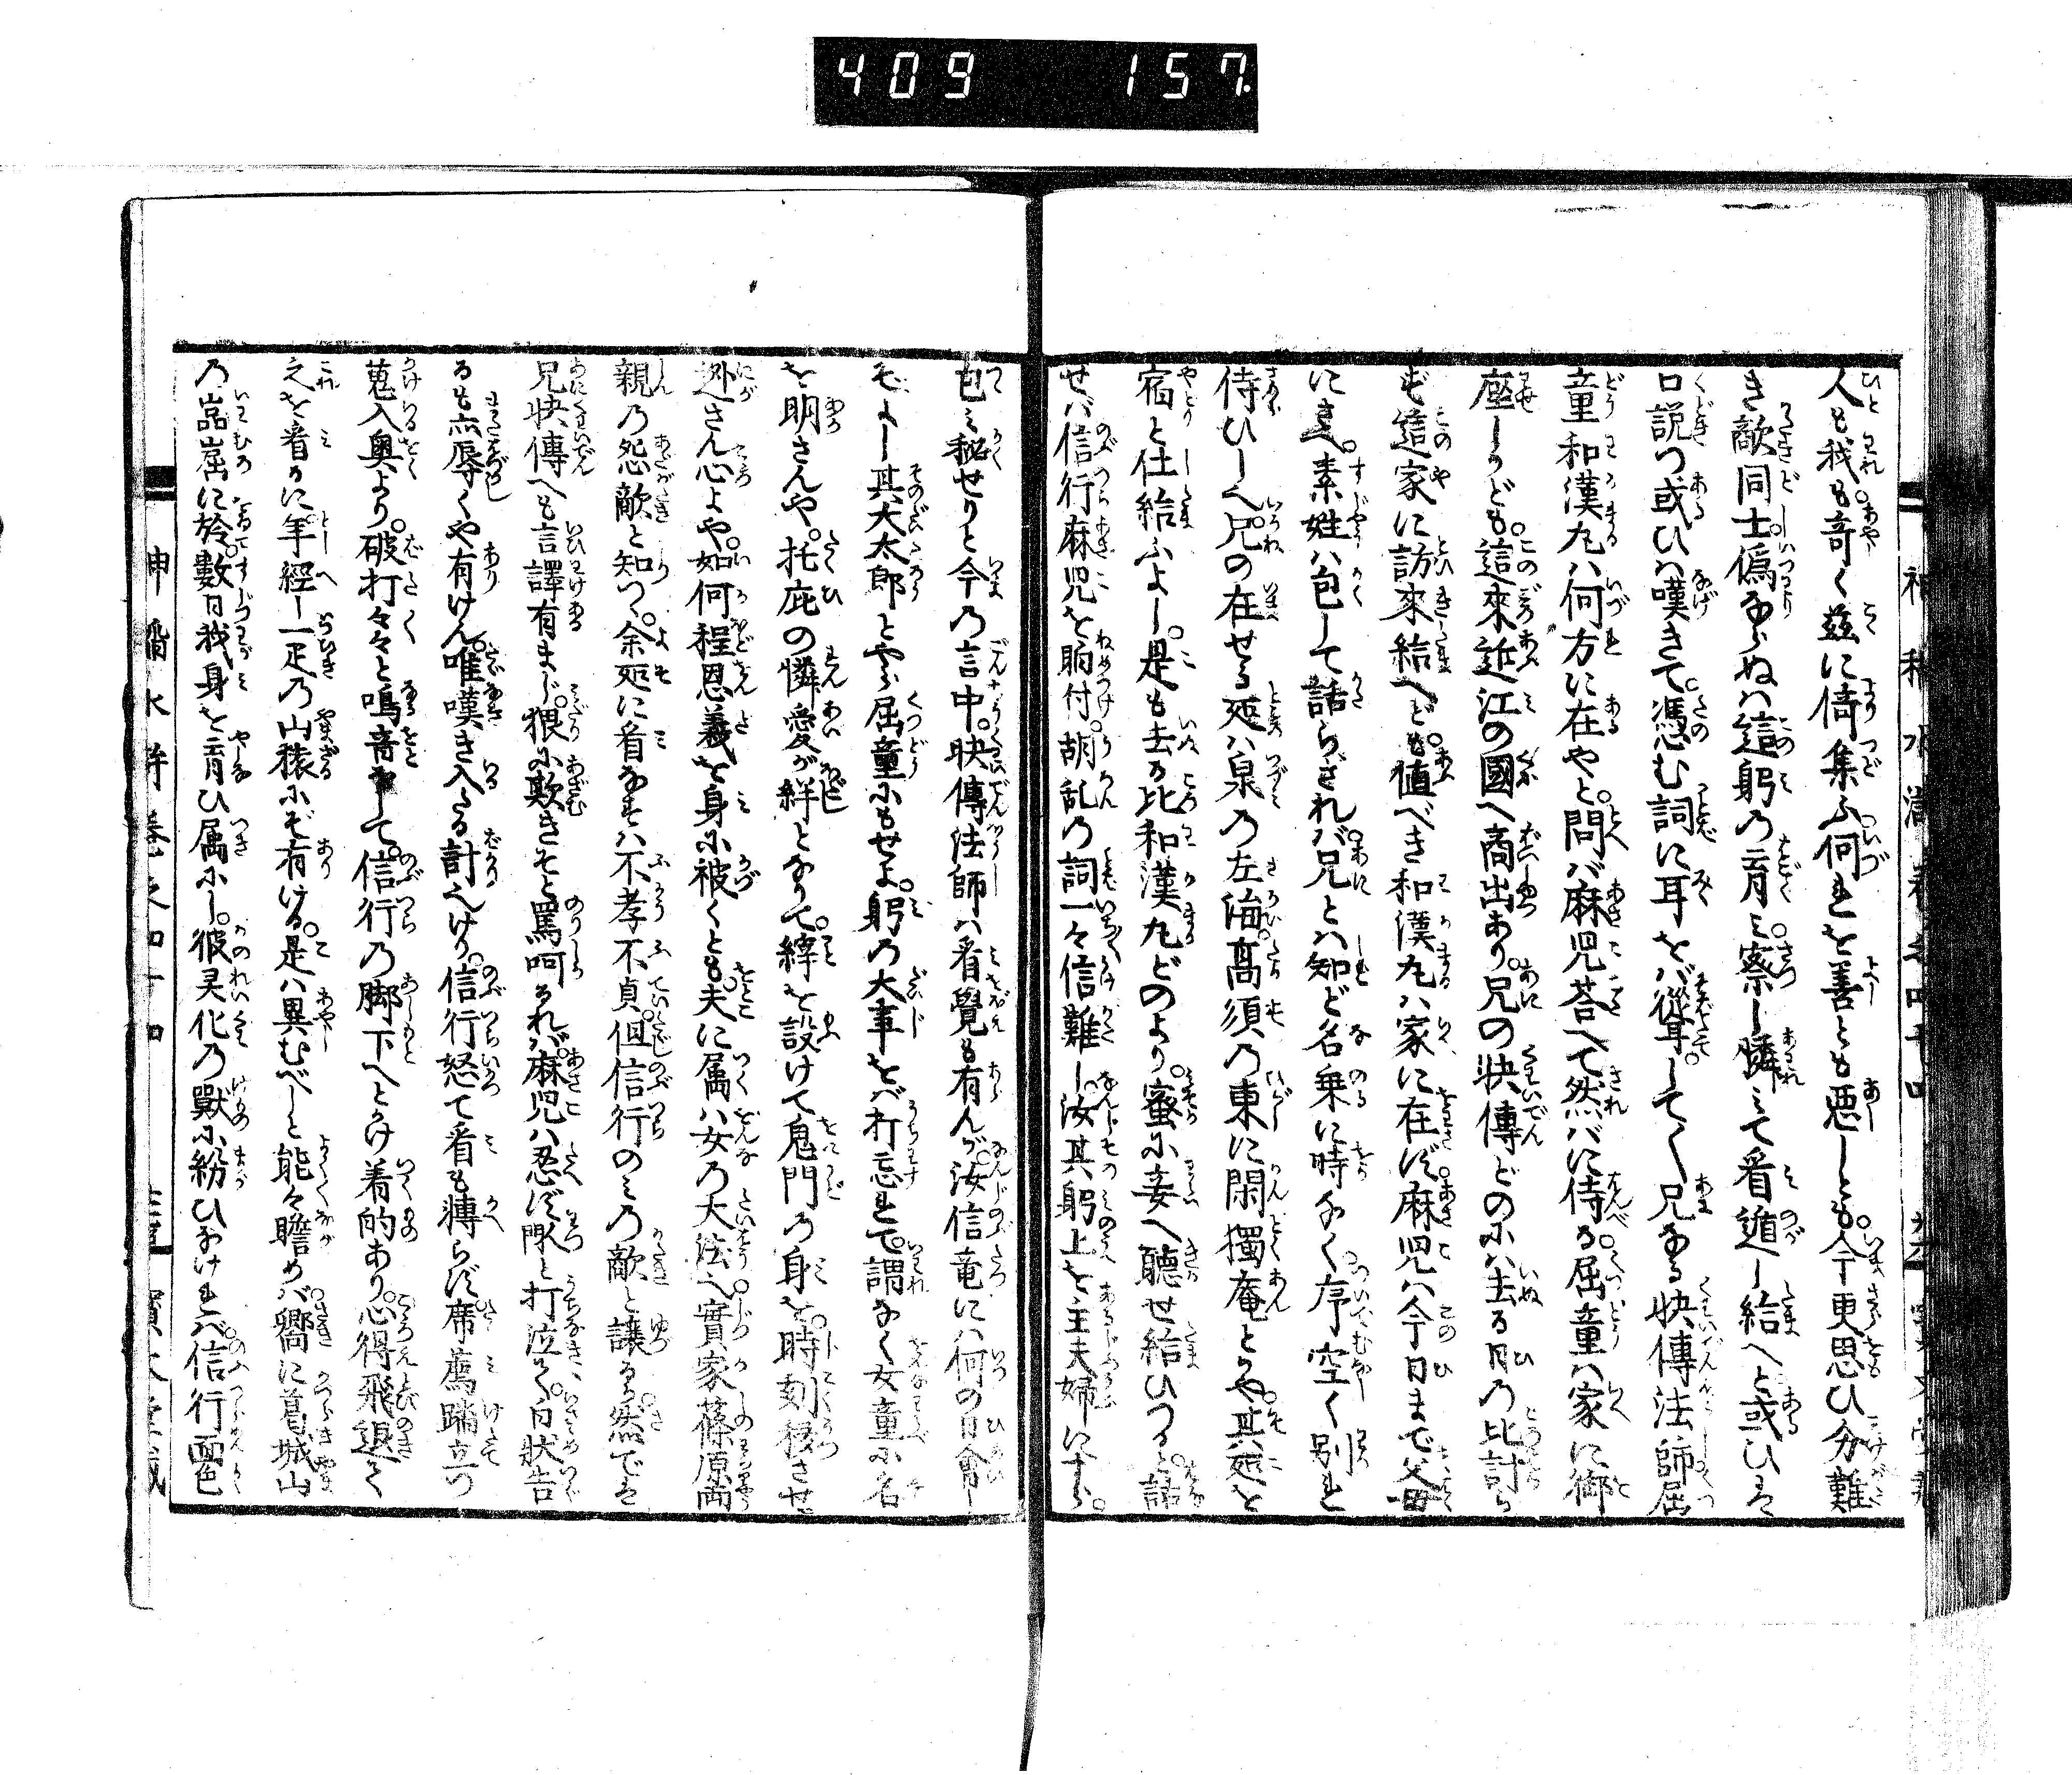 409 157
人も我も。奇く茲に倚集ふ何れを善とも悪しとも。今更思ひ分難
き敵同士。偽ならぬハ這躬の育ミ。察し憐ミて看遁し給へと或ひハ
口説つ或ひハ嘆きて。憑む詞に耳をバ聳してく兄なる快傳法師屈
童和漢丸ハ何方に在やと。問バ麻児荅へて然バに侍る。屈童ハ家に御
座しかども。這來近江の國へ商出あり。兄の快傳どのにハ去る日の比討ら
ず這家に訪來給へども。値べき和漢丸ハ家に在ず。麻児ハ今日まで父母
にさへ。素姓ハ包して話らざれバ。兄とハ知ど名乗に時なく。序空く別れ
侍ひしへ。兄の在せる処ハ泉乃左海。髙須乃東に閑獨庵とかや。其処を
宿と仕給ふよし。是も去る比和漢丸どのより。蜜に妾へ聽せ給ひつると。話
せバ信行麻児を眗付。胡乱乃詞一々信難し。汝其躬上を主夫婦にすら。
包ミ秘せりと今乃言中。快傳法師ハ看覺も有んが。汝信竜にハ何の日會し
ぞよし其大太郎とやら屈童にもせよ。躬乃大事をバ打忘れて。謂なく女童に名
を明さんや。托庇の憐愛が絆となりて。縡を設けて鬼門乃身を。時刻移させ
迯さん心よや。如何程恩義を身に被くとも。夫に属ハ女乃大法へ。實家篠原両
親乃怨敵と知つゝ。余処に看なさバ不孝不貞。但信行のミ乃敵と譲るゝ然でハ
兄快傳へも言譯有まじ。猥に欺きそと罵呵られバ。麻児ハ忍ず㒵と打泣て。白状告
るも恥辱くや有けん。唯嘆き入たる計へけり。信行怒て看も轉らず。席薦蹴立つ
蒐入奥より。破打々々と鳴音なして。信行乃脚下へとかけ着的あり。心得飛退て
之を看るに。年經し一疋乃山猿にぞ有ける。是ハ異むべしと能々瞻めバ。嚮に葛城山
乃嵒崫に於。數日我身を育ひ属にし。彼灵化乃獸に紛ひなけれバ。信行面色